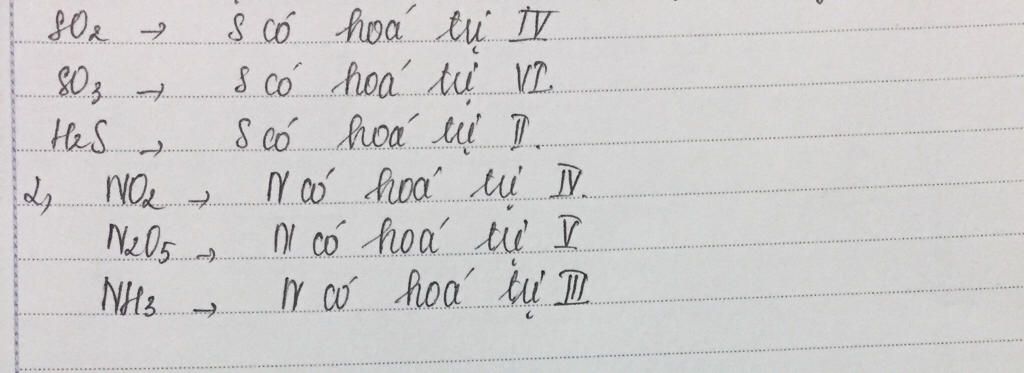 SO2 → S có hoá tụ IV
SO3 → S có hoá tụ VI.
H2S → S có hoá tụ II.
2, NO2 → N có hoá tụ IV.
N2O5 → N có hoá tụ V
NH3 → N có hoá tụ III